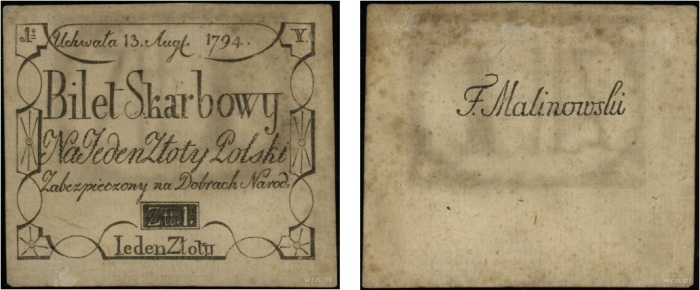 1. Uchwała 13. Augſ. 1794. Y.
Bilet Skarbowy
Na Jeden Złoty Polski
Zabezpieczony na Dobrach Narod.
Zł. 1.
Ieden Złoty
F. Malinowski
wcn.pl
wcn.pl